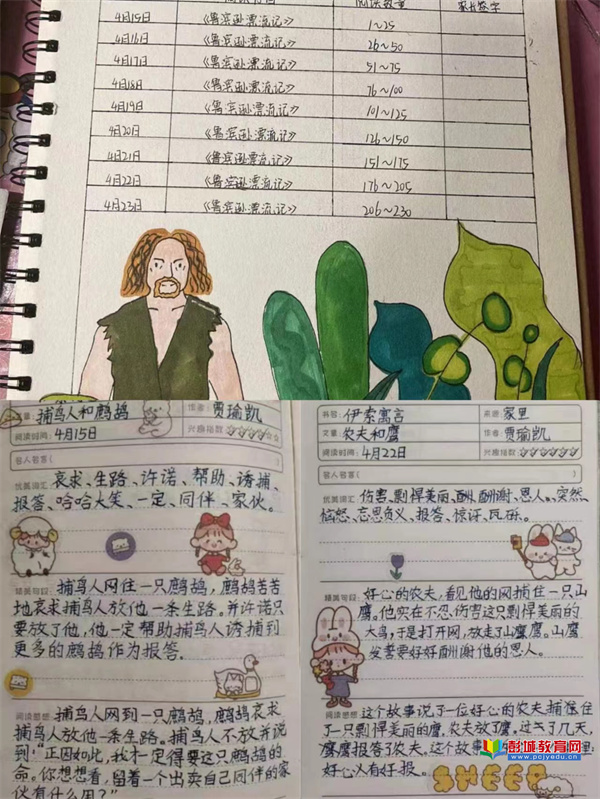 阅读数量 家长签字
4月15日 《鲁滨逊漂流记》 1~25
4月16日 《鲁滨逊漂流记》 26~50
4月17日 《鲁滨逊漂流记》 51~75
4月18日 《鲁滨逊漂流记》 76~100
4月19日 《鲁滨逊漂流记》 101~125
4月20日 《鲁滨逊漂流记》 126~150
4月21日 《鲁滨逊漂流记》 151~175
4月22日 《鲁滨逊漂流记》 176~205
4月23日 《鲁滨逊漂流记》 206~230
捕鸟人和鹧鸪 作者: 贾瑜凯
阅读时间: 4月15日 兴趣指数:
名人名言(
优美词汇 哀求、生路、许诺、帮助、诱捕、
报答、哈哈大笑、一定、同伴、家伙。
精美句段: 捕鸟人网住一只鹧鸪,鹧鸪苦苦
地哀求捕鸟人放他一条生路。并许诺只
要放了他,他一定帮助捕鸟人诱捕到
更多的鹧鸪作为报答.
阅读感想: 捕鸟人网到一只鹧鸪,鹧鸪哀求
捕鸟人放他一条生路。捕鸟人不放并说
到:“正因如此,我才一定得要这只鹧鸪的
命。你想想看,留着一个出卖自己同伴的家
伙有什么用?”
书名: 伊索寓言 来源: 家里
文章: 农夫和鹰 作者: 贾瑜凯
阅读时间: 4月22日 兴趣指数:
名人名言(
优美词汇 伤害、剽悍美丽、酬谢、恩人、突然、
恼怒、忘恩负义、报答、惊讶、瓦砾。
精美句段: 好心的农夫,看见他的网捕住一只山
鹰。他实在不忍伤害这只剽悍美丽的
大鸟,于是打开网,放走了山鹰。山鹰
发誓要好好酬谢他的恩人。
阅读感想: 这个故事说了一位好心的农夫捕住
了一只剽悍美丽的鹰,农夫放了鹰。过了几天,
鹰报答了农夫。这个故事
好心必有好报。
SHEEP
彭城教育网
www.pcjyedu.cn